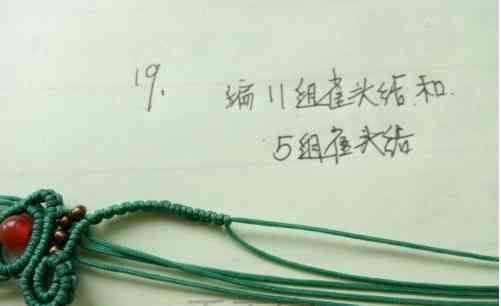 19.
编11组雀头结和
5组雀头结